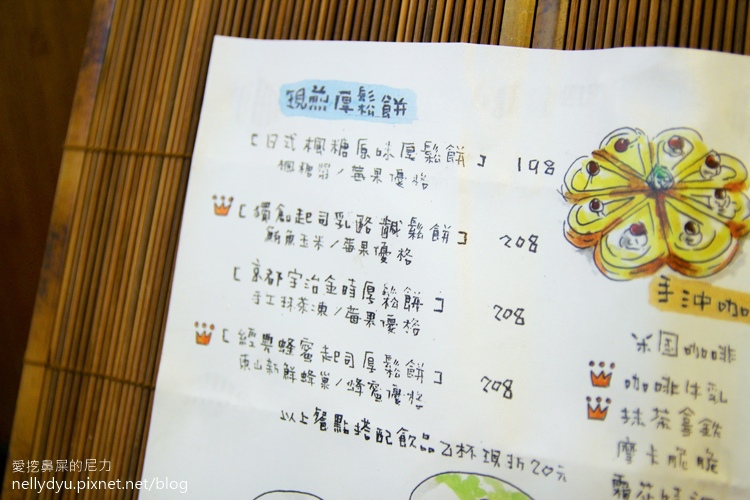 現煎厚鬆餅
[日式楓糖原味厚鬆餅] 198
楓糖漿/莓果優格
[獨創起司乳酪鹹鬆餅] 208
鮪魚玉米/莓果優格
[京都宇治金時厚鬆餅] 208
手工抹茶凍/莓果優格
[經典蜂蜜起司厚鬆餅] 208
東山新鮮蜂巢/蜂蜜優格
以上餐點搭配飲品乙杯現折20元
手沖咖
米国咖啡
咖啡牛乳
抹茶拿鉄
摩卡脆脆
愛挖鼻屎的尼力
nellydyu.pixnet.net/blog